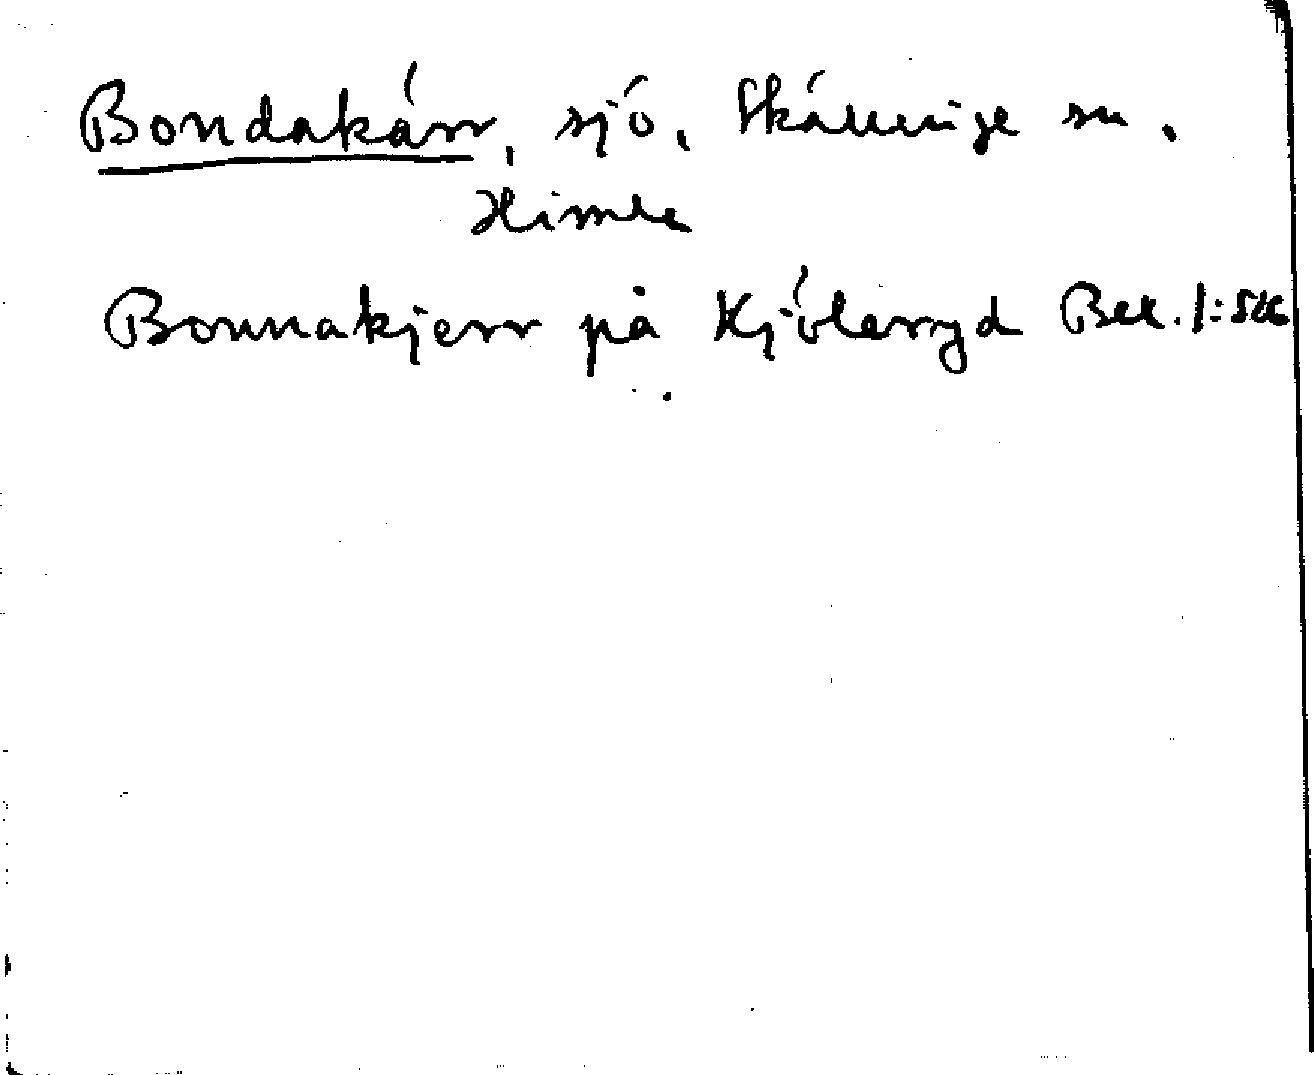 Bondakärr, sjö, Skällinge sn,
Himle
Bonnakjerr på Kjöleryd Bek. 1: